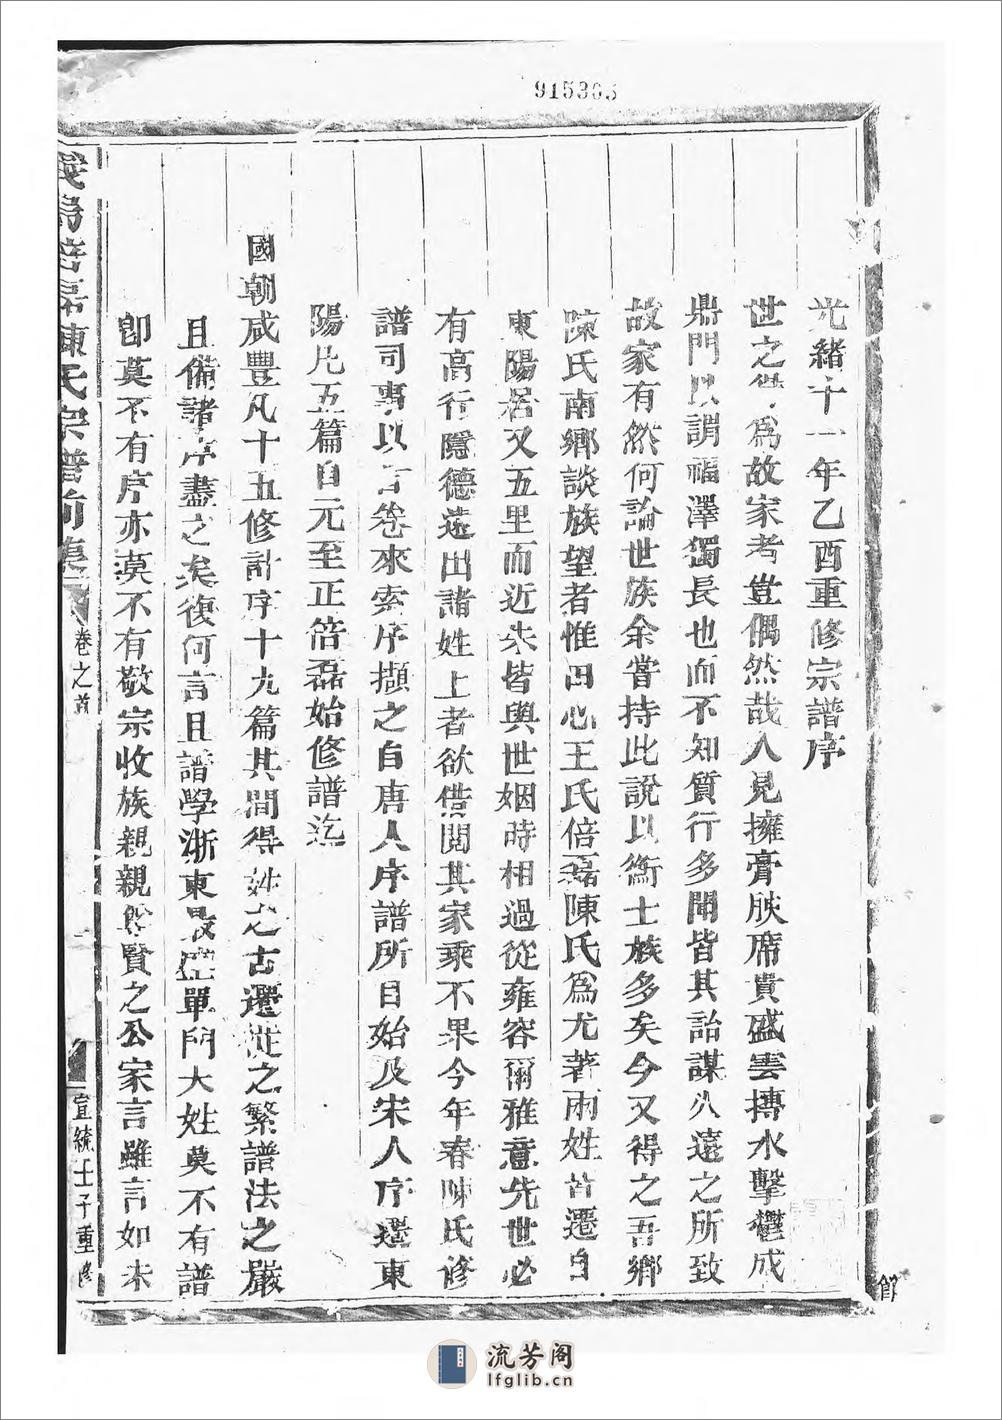 915305
光緒十一年乙酉重修宗譜序
世之得爲故家者豈偶然哉人見擁膏腴席貴盛雲摶水擊鬱成
鼎門以謂福澤獨長也而不知質行多聞皆其詒謀久遠之所致
故家有然何論世族余嘗持此說以衡士族多矣今又得之吾鄉
陳氏南鄉談族望者惟田心王氏倍磊陳氏爲尤著兩姓皆遷自
東陽居又五里而近朱皆與世姻時相過從雍容爾雅意先世必
有高行隱德遠出諸姓上者欲借閱其家乘不果今年春陳氏修
譜司事以言卷來索序擷之自唐人序譜所目始及宋人序遷東
陽凡五篇自元至正倍磊始修譜迄
國朝咸豐凡十五修計序十九篇其間得姓之古遷徙之繁譜法之嚴
且備諸序盡之矣復何言且譜學浙東最盛單門大姓莫不有譜
卽莫不有序亦莫不有敬宗收族親親賢之公家言雖言如未
義烏倍磊陳氏宗譜前集 卷之首 一 宣統壬子重修
館
流芳阁
lfglib.cn